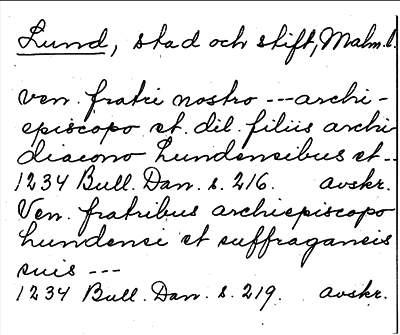 Lund, stad och stift, Malm.l.
Ven. fratri nostro --- archi-
episcopo et. dil. filiis archi
diacono Lundensibus et--
1234 Bull. Dan. s. 216. avskr.
Ven. fratribus archiepiscopo
Lundensi et suffraganeis
suis ---
1234 Bull. Dan. s. 219. avskr.